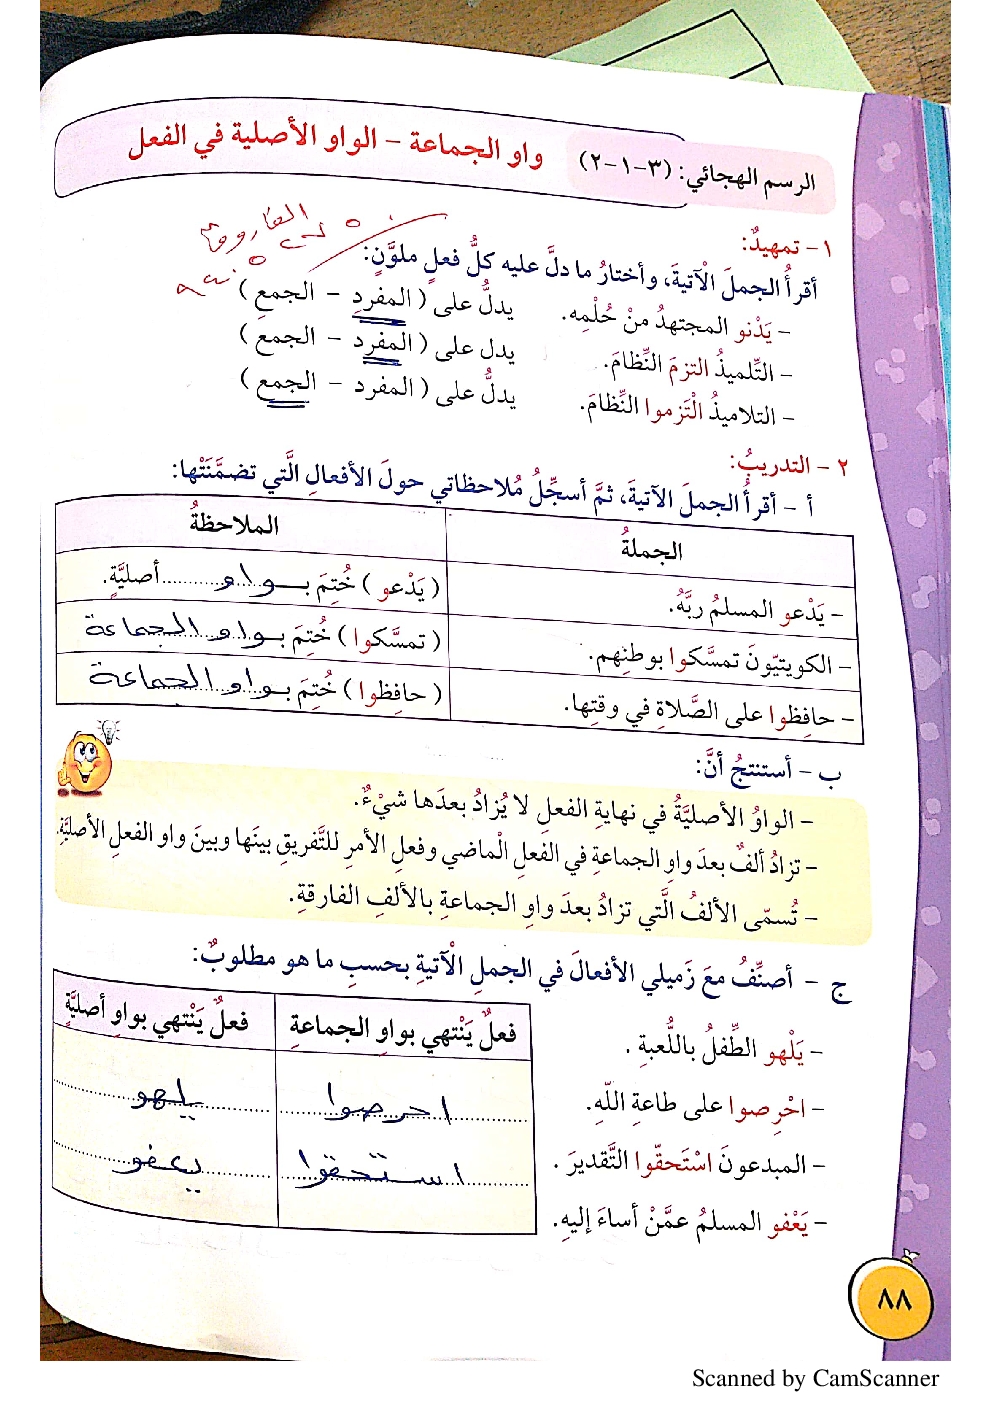 الرسم الهجائي: (٣-١-٢) واو الجماعة - الواو الأصلية في الفعل
١- تمهيدٌ:
أقرأُ الجملَ الْآتيةَ، وأختارُ ما دلَّ عليه كلُّ فعلٍ ملوَّنٍ:
- يَدْنو المجتهدُ منْ حُلْمِه. يدلُّ على (المفردِ - الجمعِ)
- التِّلميذُ التزمَ النِّظامَ. يدل على (المفردِ - الجمعِ)
- التلاميذُ الْتَزموا النِّظامَ. يدلُّ على (المفردِ - الجمعِ)
٢- التدريبُ:
أ - أقرأُ الجملَ الآتيةَ، ثمَّ أسجِّلُ مُلاحظاتي حولَ الأفعالِ الَّتي تضمَّنَتْها:
الجملةُ الملاحظةُ
- يَدْعو المسلمُ ربَّهُ. (يَدْعو) خُتِمَ بـواو أصليَّةٍ.
- الكويتيّونَ تمسَّكوا بوطنِهم. (تمسَّكوا) خُتِمَ بـواو الجماعة
- حافِظوا على الصَّلاةِ في وقتِها. (حافِظوا) خُتِمَ بـواو الجماعة
ب - أستنتجُ أنَّ:
- الواوُ الأصليَّةُ في نهايةِ الفعلِ لا يُزادُ بعدَها شيْءٌ.
- تزادُ ألفٌ بعدَ واوِ الجماعةِ في الفعلِ الْماضي وفعلِ الأمرِ للتَّفريقِ بينَها وبينَ واو الفعلِ الأصليَّةِ.
- تُسمّى الألفُ الَّتي تزادُ بعدَ واوِ الجماعةِ بالألفِ الفارقةِ.
ج - أصنِّفُ معَ زَميلي الأفعالَ في الجملِ الْآتيةِ بحسبِ ما هو مطلوبٌ:
فعلٌ يَنْتهي بواوِ الجماعةِ فعلٌ يَنْتهي بواوٍ أصليَّةٍ
- يَلْهو الطِّفلُ باللُّعبةِ.
احرصوا يلهو
- احْرِصوا على طاعةِ اللّهِ.
- المبدعونَ اسْتَحقّوا التَّقديرَ.
استحقوا يعفو
- يَعْفو المسلمُ عمَّنْ أساءَ إليهِ.
٨٨
Scanned by CamScanner